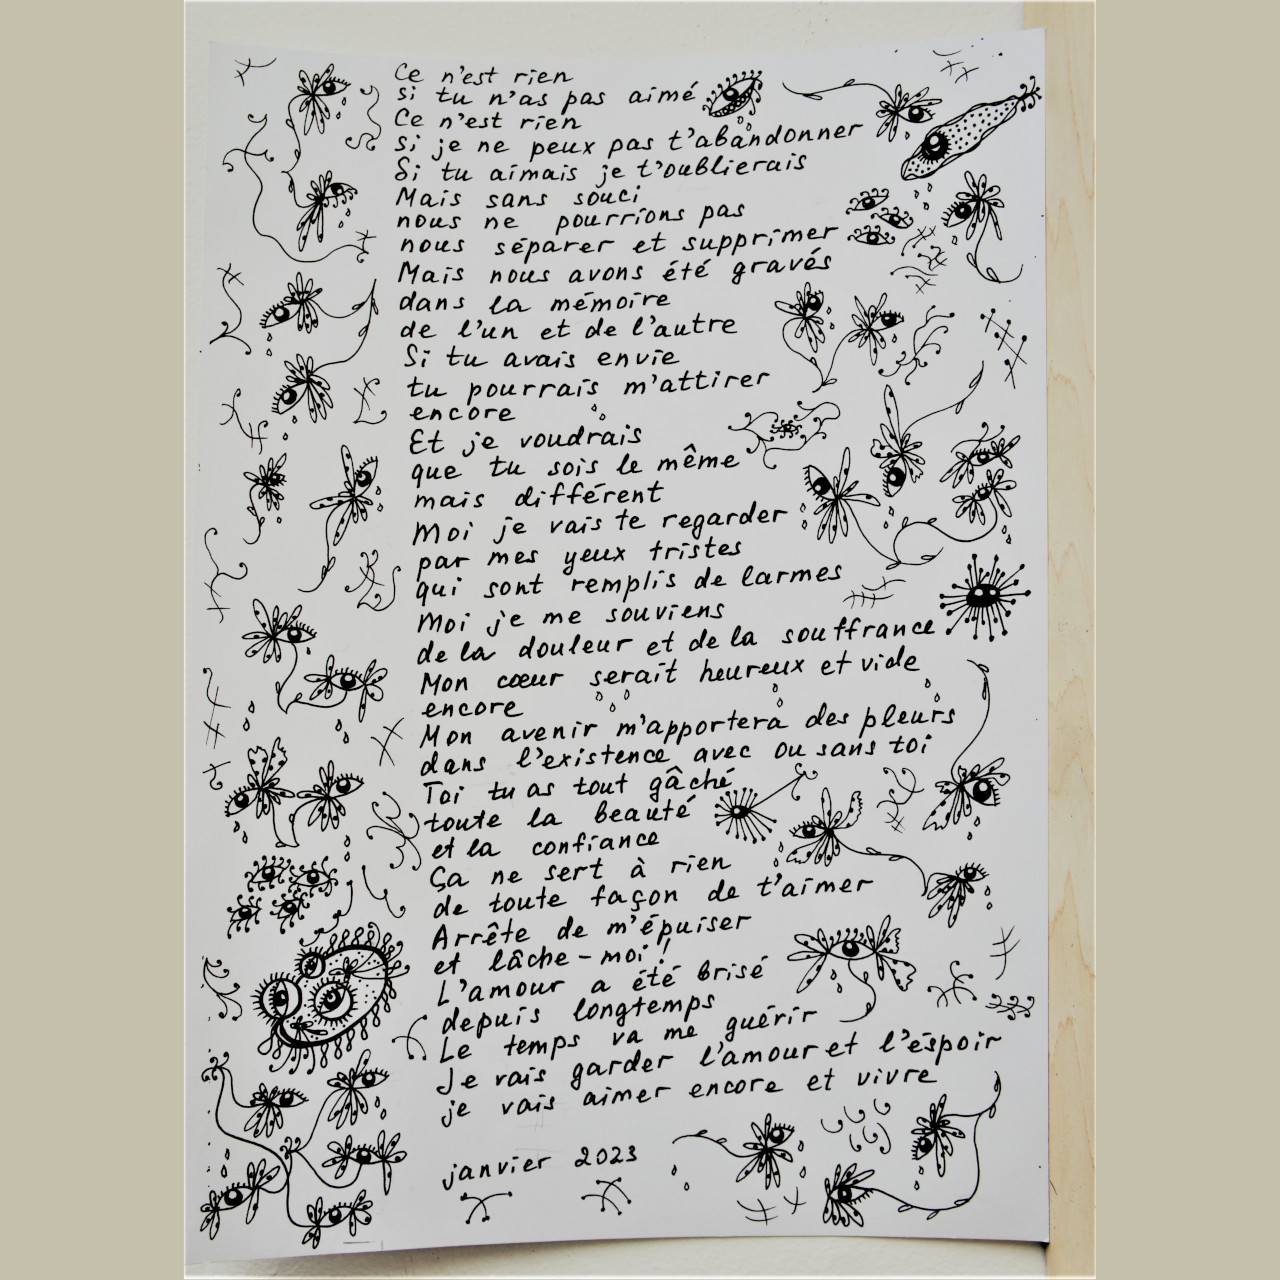 Ce n'est rien
si tu n'as pas aimé
Ce n'est rien
si je ne peux pas t'abandonner
Si tu aimais je t'oublierais
Mais sans souci
nous ne pourrions pas
nous séparer et supprimer
Mais nous avons été gravés
dans la mémoire
de l'un et de l'autre
Si tu avais envie
tu pourrais m'attirer
encore
Et je voudrais
que tu sois le même
mais différent
Moi je vais te regarder
par mes yeux tristes
qui sont remplis de larmes
Moi je me souviens
de la douleur et de la souffrance
Mon cœur serait heureux et vide
encore
Mon avenir m'apportera des pleurs
dans l'existence avec ou sans toi
Toi tu as tout gâché
toute la beauté
et la confiance
Ça ne sert à rien
de toute façon de t'aimer
Arrête de m'épuiser
et lâche-moi!
L'amour a été brisé
depuis longtemps
Le temps va me guérir
Je vais garder l'amour et l'éspoir
je vais aimer encore et vivre
janvier 2023